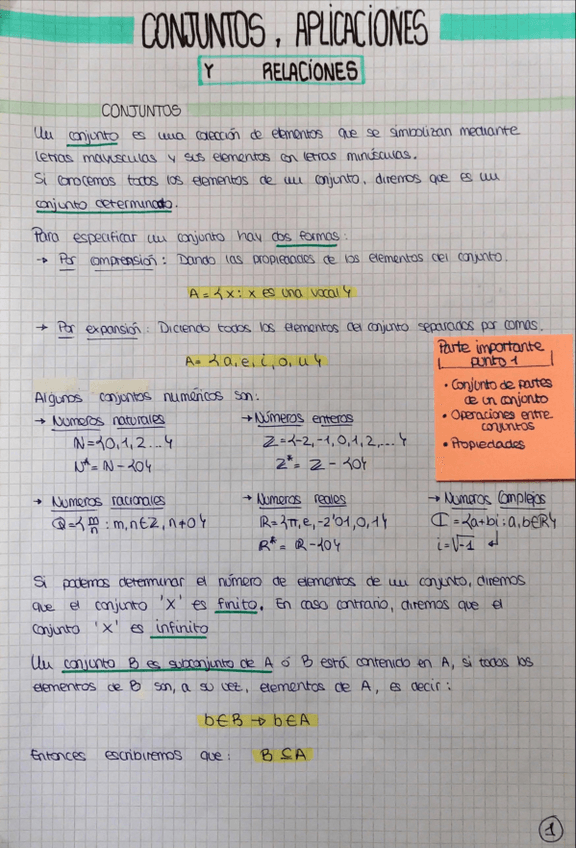 CONJUNTOS, APLICACIONES
Y RELACIONES
CONJUNTOS
Un conjunto es una colección de elementos que se simbolizan mediante
letras mayúsculas y sus elementos en letras minúsculas.
Si conocemos todos los elementos de un conjunto, diremos que es un
conjunto determinado.
Para especificar un conjunto hay dos formas:
→ Por comprensión: Dando las propiedades de los elementos del conjunto.
A = {x : x es una vocal}
→ Por expansión: Diciendo todos los elementos del conjunto separados por comas.
A = {a, e, i, o, u}
Parte importante
punto 1
• Conjunto de partes
de un conjunto
• Operaciones entre
conjuntos
• Propiedades
Algunos conjuntos numéricos son:
→ Números naturales
N = {0, 1, 2 ...}
N* = N - {0}
→ Números enteros
Z = {-2, -1, 0, 1, 2, ...}
Z* = Z - {0}
→ Números racionales
Q = {m/n : m, n ∈ Z, n ≠ 0}
→ Números reales
R = {π, e, -2'01, 0, 1}
R* = R - {0}
→ Números Complejos
C = {a+bi : a, b ∈ R}
i = √-1 ↲
Si podemos determinar el número de elementos de un conjunto, diremos
que el conjunto 'X' es finito. En caso contrario, diremos que el
conjunto 'X' es infinito
Un conjunto B es subconjunto de A ó B está contenido en A, si todos los
elementos de B son, a su vez, elementos de A, es decir:
b ∈ B → b ∈ A
Entonces escribiremos que: B ⊆ A
1